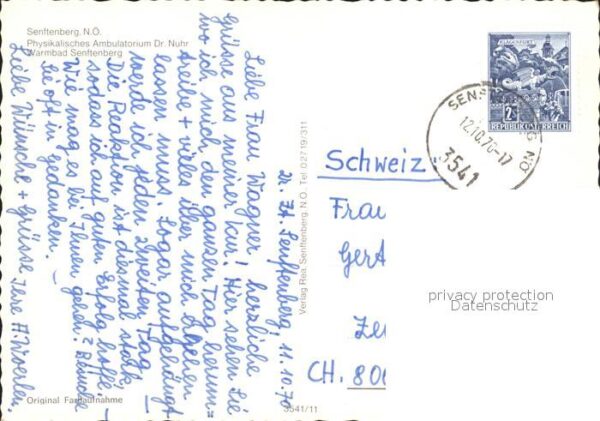 Senftenberg, N.Ö.
Physikalisches Ambulatorium Dr. Nuhr
Warmbad Senftenberg
dz. Zt. Senftenberg, 11.10.70
Liebe Frau Wagner! herzliche
Grüsse aus meiner Kur! Hier sehen Sie
wo ich mich den ganzen Tag herum=
treibe + vieles über mich ergehen
lassen muss. Sogar aufgehängt
werde ich jeden zweiten Tag –
Die Reaktion ist diesmal stark,
sodass ich auf guten Erfolg hoffe. –
Wie mag es bei Ihnen gehen? Besuche
Sie oft in gedanken. –
Liebe Wünsche + Grüsse Ihre A. Woerlen.
Verlag Rea, Senftenberg, N.Ö. Tel. 02719/311
KLAGENFURT
2S
REPUBLIK ÖSTERREICH
SENFTENBERG NÖ
12.10.70-17
3541
Schweiz
Frau
Gert
CH. 800
privacy protection
Datenschutz
Original Farbaufnahme
3541/11